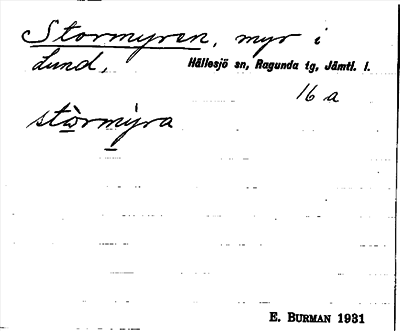 Stormyren, myr i
Lund, Hällesjö sn, Ragunda tg, Jämtl. l.
16 a
stòrmỳra
E. BURMAN 1931